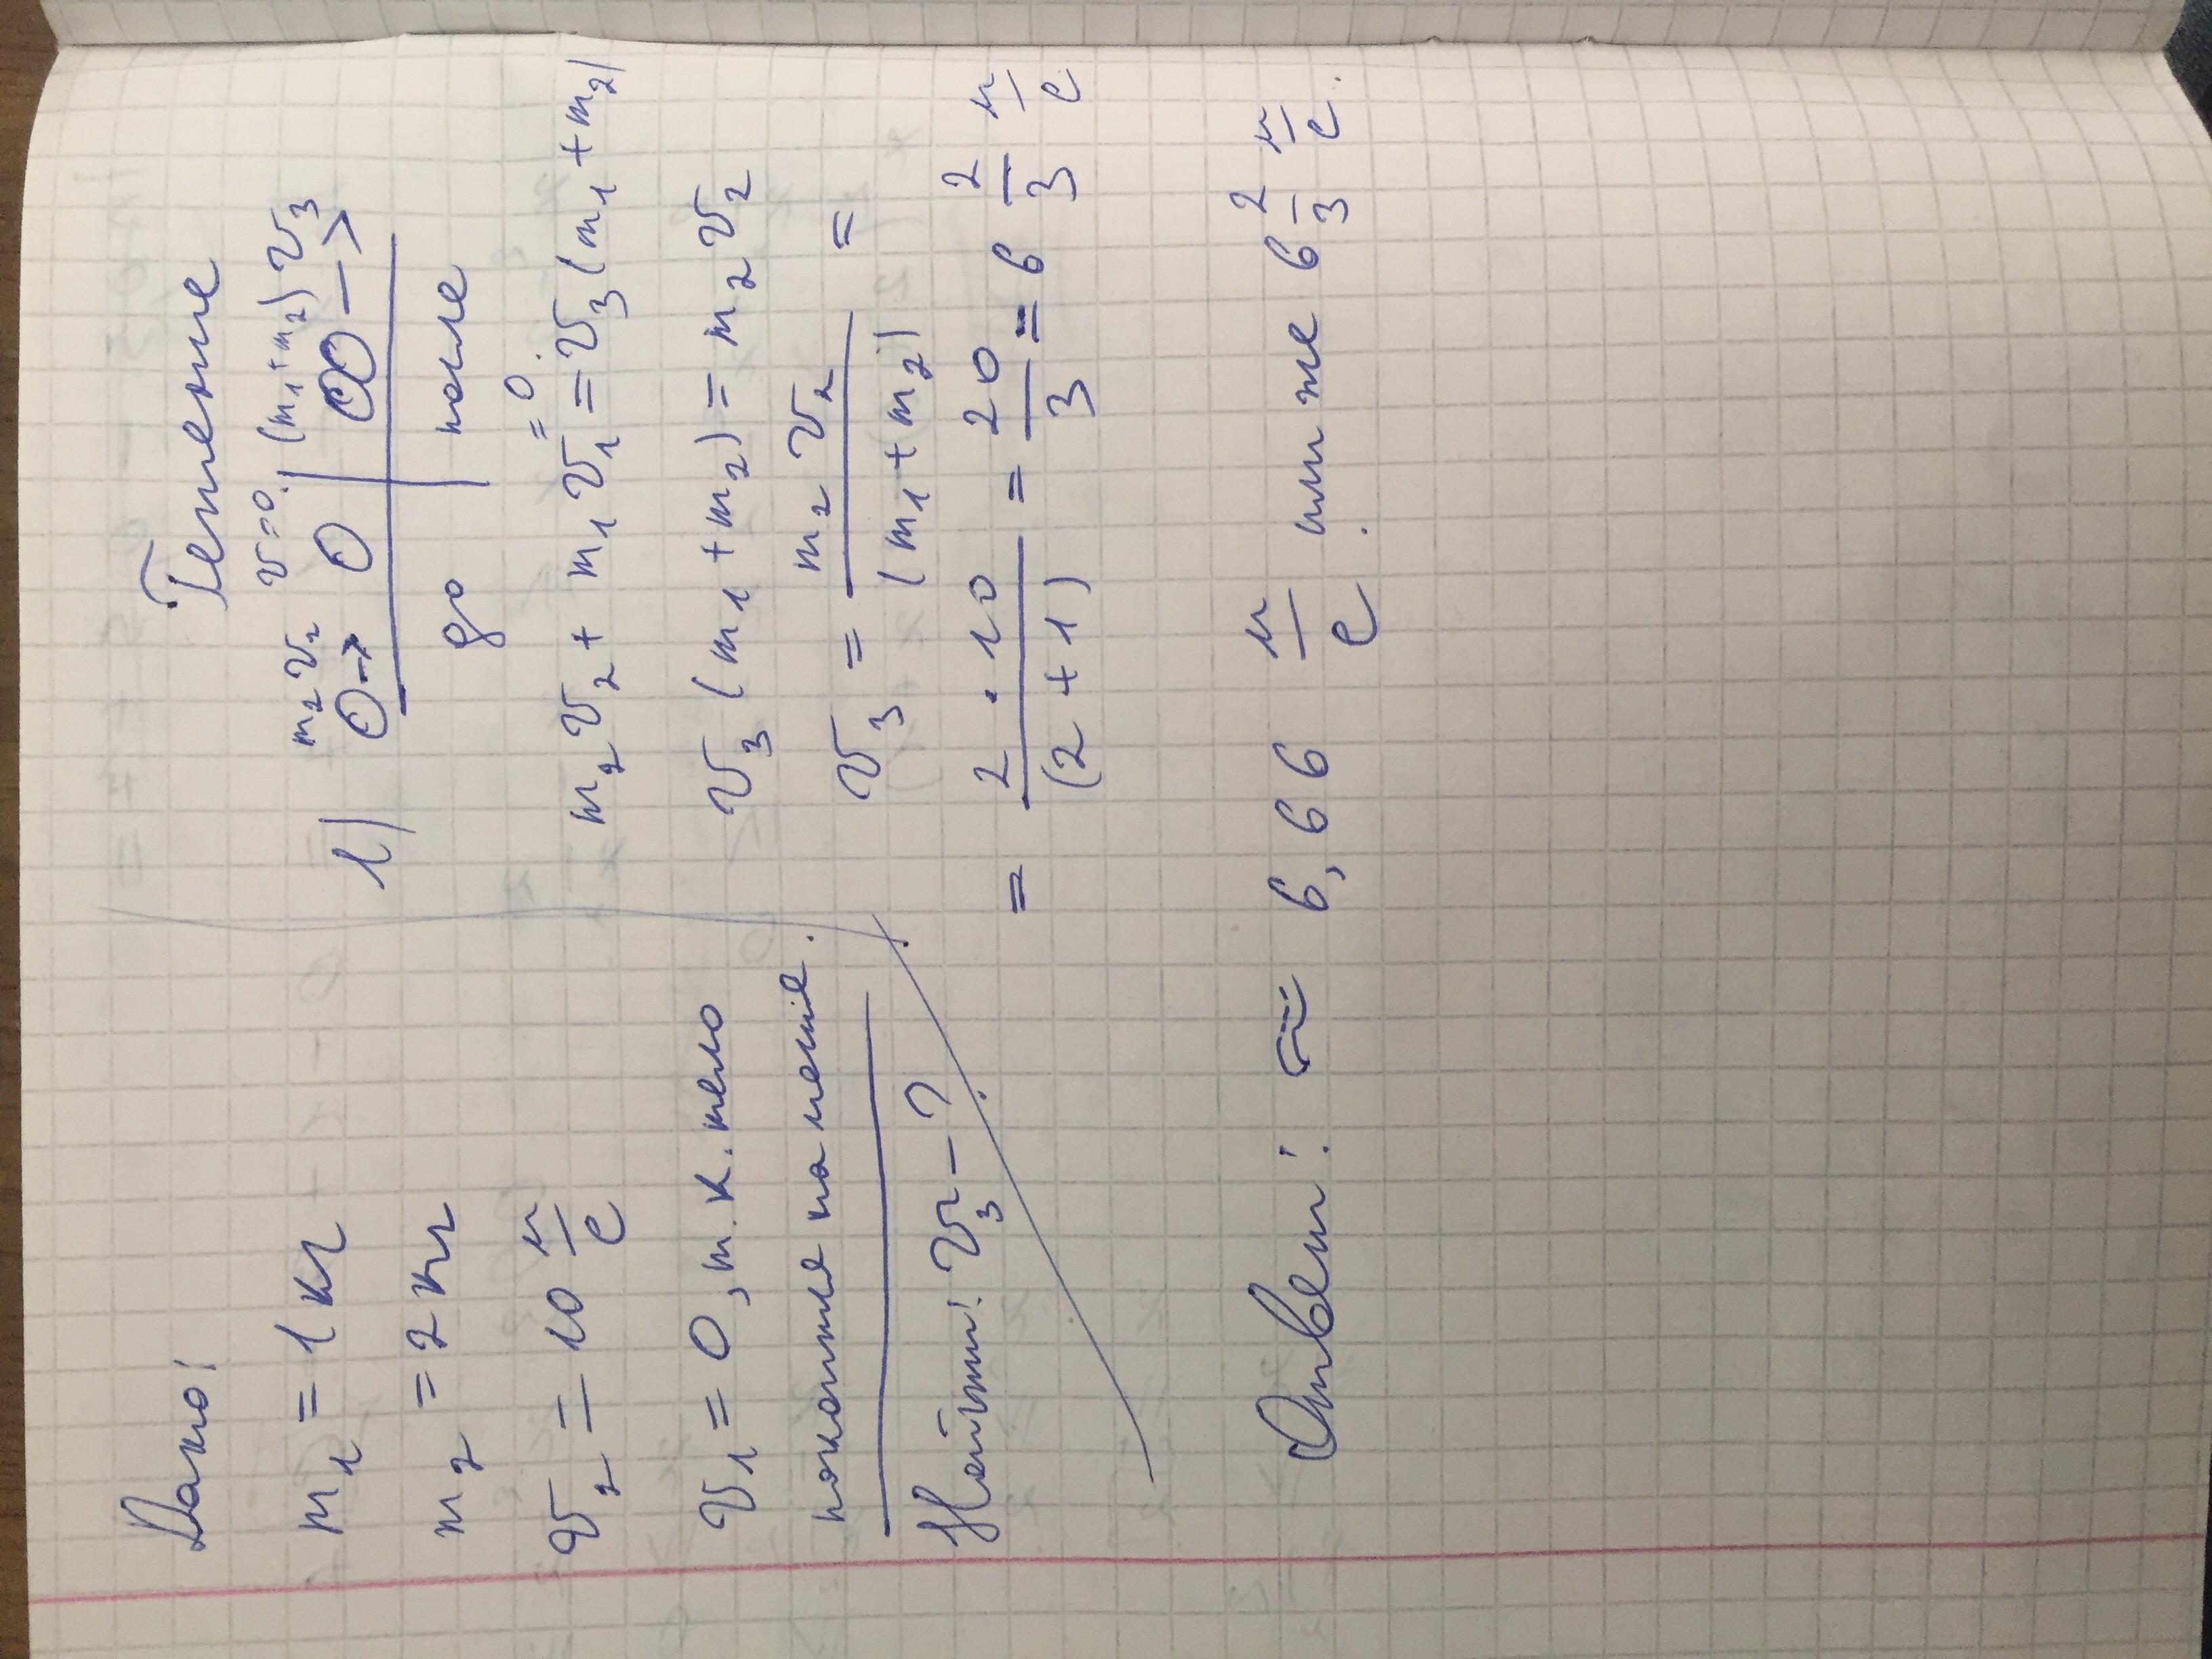 Дано:
m₁ = 1 кг
m₂ = 2 кг
v₂ = 10 м/с
v₁ = 0, т.к. тело
покоится на месте.
Найти: v₃ - ?
Решение
1) m₂v₂ v=0. (m₁+m₂)v₃
до | после
m₂v₂ + m₁v₁ = v₃(m₁+m₂)
=0
v₃(m₁+m₂) = m₂v₂
v₃ = m₂v₂/(m₁+m₂) =
= 2·10/(2+1) = 20/3 = 6 2/3 м/с
Ответ: ≈ 6,66 м/с или же 6 2/3 м/с.